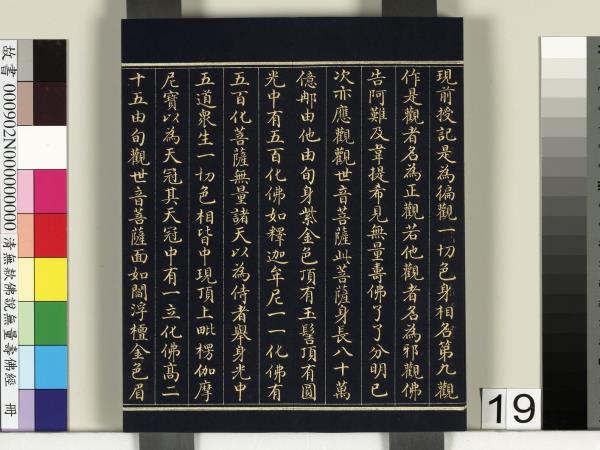 現前授記是為徧觀一切色身相名第九觀
作是觀者名為正觀若他觀者名為邪觀佛
告阿難及韋提希見無量壽佛了了分明已
次亦應觀觀世音菩薩此菩薩身長八十萬
億那由他由旬身紫金色頂有玉髻頂有圓
光中有五百化佛如釋迦牟尼一一化佛有
五百化菩薩無量諸天以為侍者舉身光中
五道衆生一切色相皆中現頂上毗楞伽摩
尼寶以為天冠其天冠中有一立化佛高二
十五由旬觀世音菩薩面如閻浮檀金色眉
故書 000902N000000000 清無款佛說無量壽佛經 冊
19